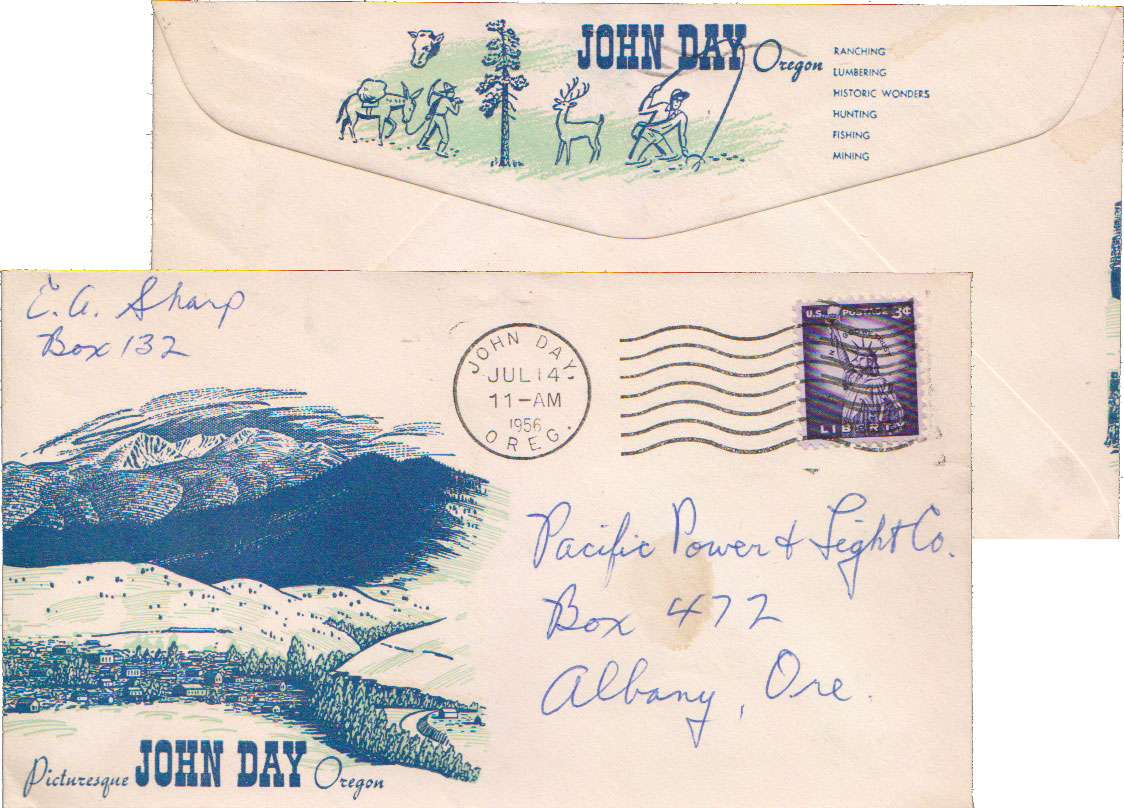 JOHN DAY Oregon
RANCHING
LUMBERING
HISTORIC WONDERS
HUNTING
FISHING
MINING
E. A. Sharp
Box 132
JOHN DAY,
JUL 14
11-AM
1956
OREG.
U.S. POSTAGE 3¢
IN GOD WE TRUST
LIBERTY
Pacific Power & Light Co.
Box 472
Albany, Ore.
Picturesque JOHN DAY Oregon